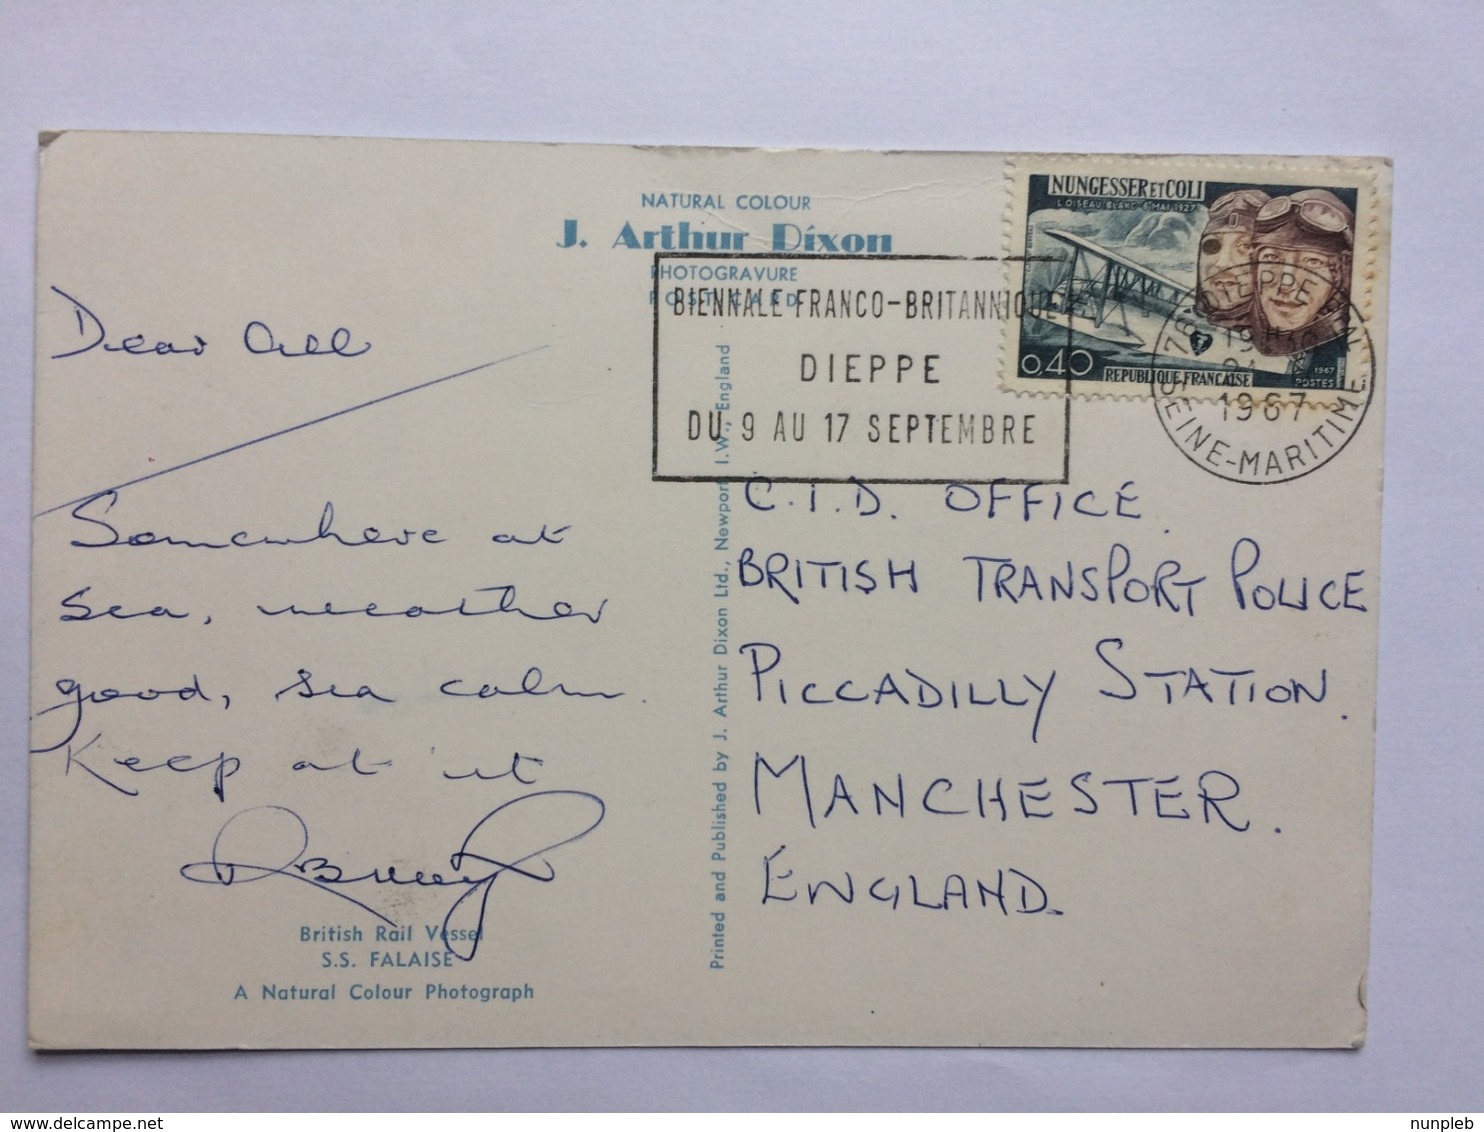 NATURAL COLOUR
J. Arthur Dixon
PHOTOGRAVURE
POST CARD
BIENNALE FRANCO-BRITANNIQUE
DIEPPE
DU 9 AU 17 SEPTEMBRE
NUNGESSER ET COLI
L'OISEAU BLANC-8 MAI 1927
0,40
REPUBLIQUE FRANCAISE
1967
POSTES
76-DIEPPE
19H30
1967
SEINE-MARITIME
Dear All
Somewhere at
sea, weather
good, sea calm
Keep at it
British Rail Vessel
S.S. FALAISE
A Natural Colour Photograph
Printed and Published by J. Arthur Dixon Ltd., Newport I.W., England
C.I.D. OFFICE.
BRITISH TRANSPORT POLICE
PICCADILLY STATION.
MANCHESTER.
ENGLAND.
delcampe.net
nunpleb